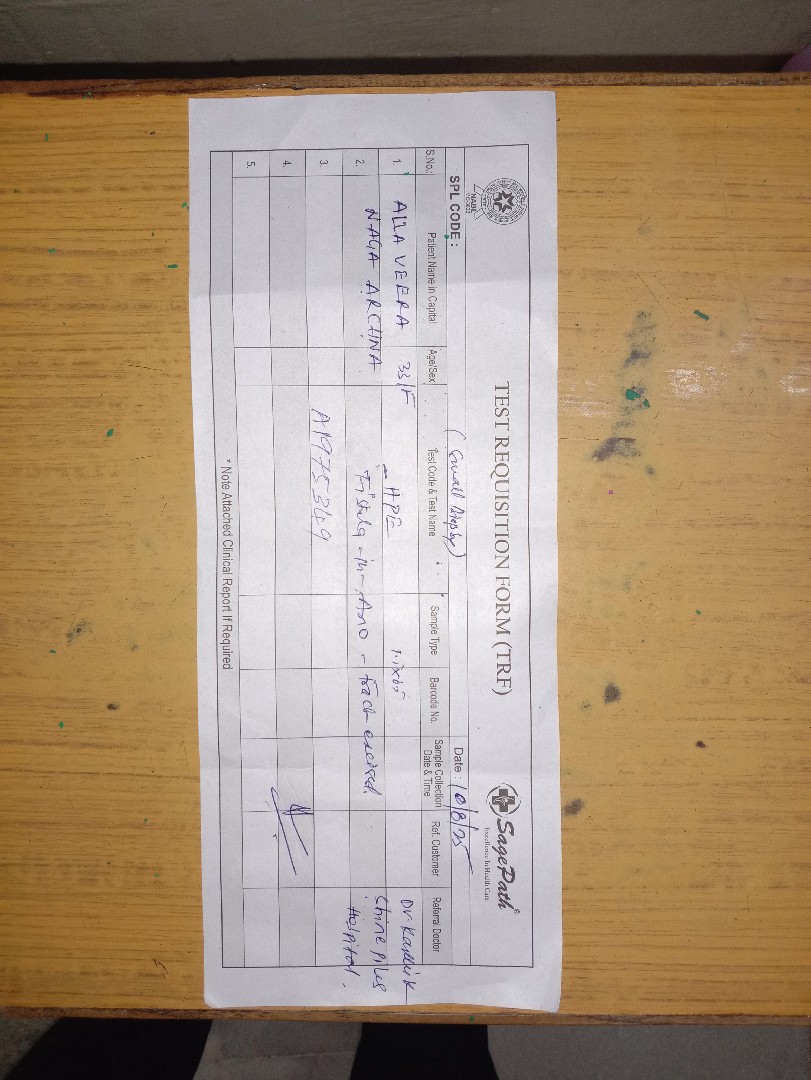 TEST REQUISITION FORM (TRF)
NABL
SagePath®
Excellence In Health Care
SPL CODE :
(Small Biopsy)
Date : 10/8/25
S.No.: Patient Name in Capital Age/Sex Test Code & Test Name Sample Type Barcode No. Sample Collection Date & Time Ref. Customer Referral Doctor
1. ALLA VEERA 33/F HPE Dr. Karthik
2. NAGA ARCHNA Fistula-in-Ano - Tract excised. Shine Piles
Hospital.
3. A1975349
4.
5.
* Note Attached Clinical Report If Required